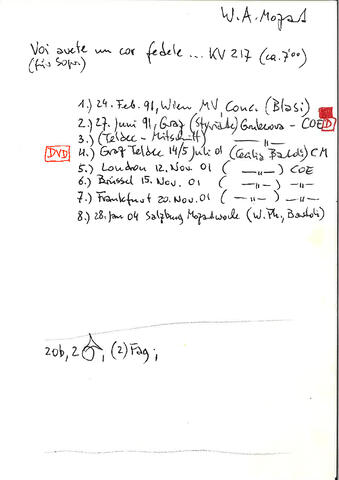 W. A. Mozart
Voi avete un cor fedele... KV 217 (ca. 7'00)
(für Sopr.)
1.) 24. Feb. 91, Wien MV, Conc. (Blasi)
2.) 27. Juni 91, Graz (Styriarte) Gruberova - COE D
3.) (Teldec - Mitschnitt) —"—
DVD 4.) Graz Teldec 14/5 Juli 01 (Cecilia Bartoli) CM
5.) London 12. Nov. 01 ( —"— ) COE
6.) Brüssel 15. Nov. 01 ( —"— ) —"—
7.) Frankfurt 20. Nov. 01 ( —"— ) —"—
8.) 28. Jan 04 Salzburg Mozartwoche (W. Ph., Bartoli)
2 Ob, 2 , (2) Fag;